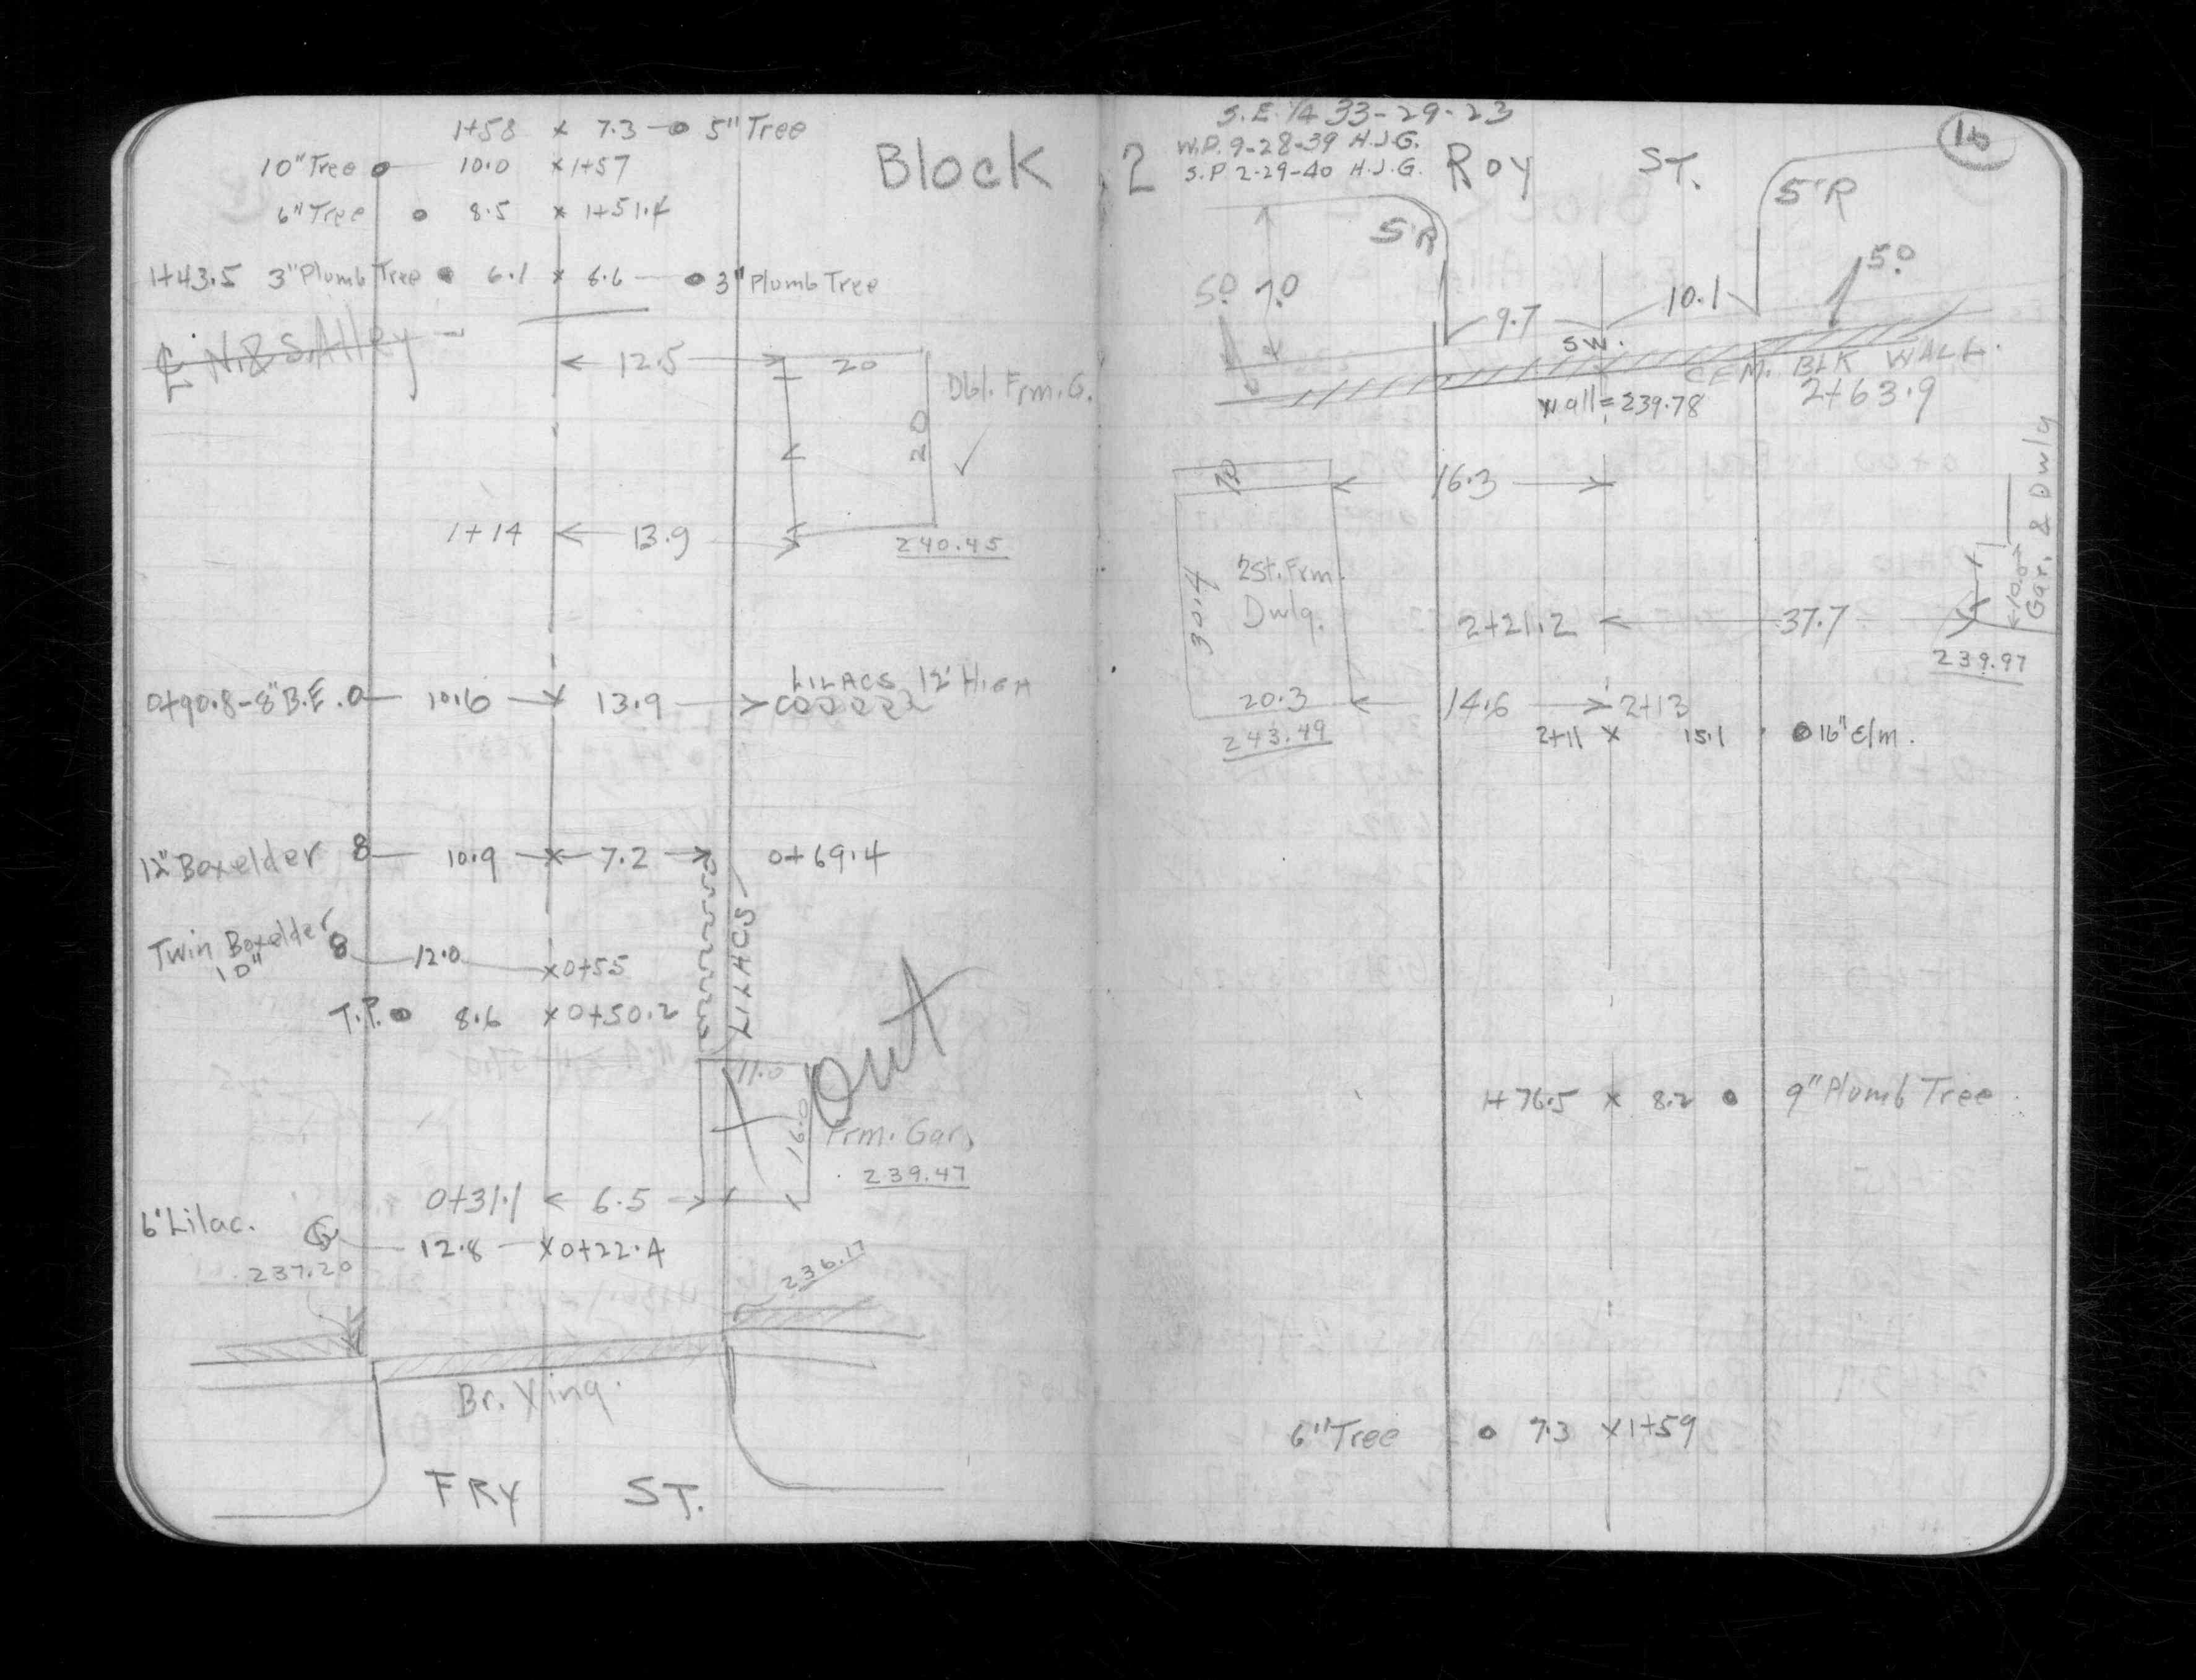 1+58 x 7.3 5" Tree
10" Tree 10.0 x 1+57
6" Tree 8.5 x 1+51.4
Block 2
1+43.5 3" Plumb Tree 6.1 x 8.6 3" Plumb Tree
℄ N. & S. Alley
12.5 20
20 Dbl. Frm. G.
1+14 13.9
240.45
0+90.8-8" B.E. 10.6 x 13.9 LILACS 12' HIGH
12" Boxelder 10.9 x 7.2 0+69.4
LILACS
Twin Boxelder 12.0 x 0+55
10"
T.P. 8.6 x 0+50.2
out
11.0
16.0 Frm. Gar.
239.47
0+31.1 6.5
6' Lilac. 12.8 x 0+22.4
237.20 236.17
Br. Xing.
FRY ST.
S.E. 1/4 33-29-23
W.P. 9-28-39 H.J.G.
S.P 2-29-40 H.J.G.
ROY ST.
16
5'R 5'R
5.0 7.0 5.0
9.7 10.1
SW.
CEM. BLK WALK.
Wall = 239.78 2+63.9
16.3
Gar. & Dwlg
10.0
30.4 2 St. Frm.
Dwlg.
2+21.2 37.7
239.97
20.3 14.6 2+13
243.49
2+11 x 15.1 16" Elm.
1+76.5 x 8.2 9" Plumb Tree
6" Tree 7.3 x 1+59